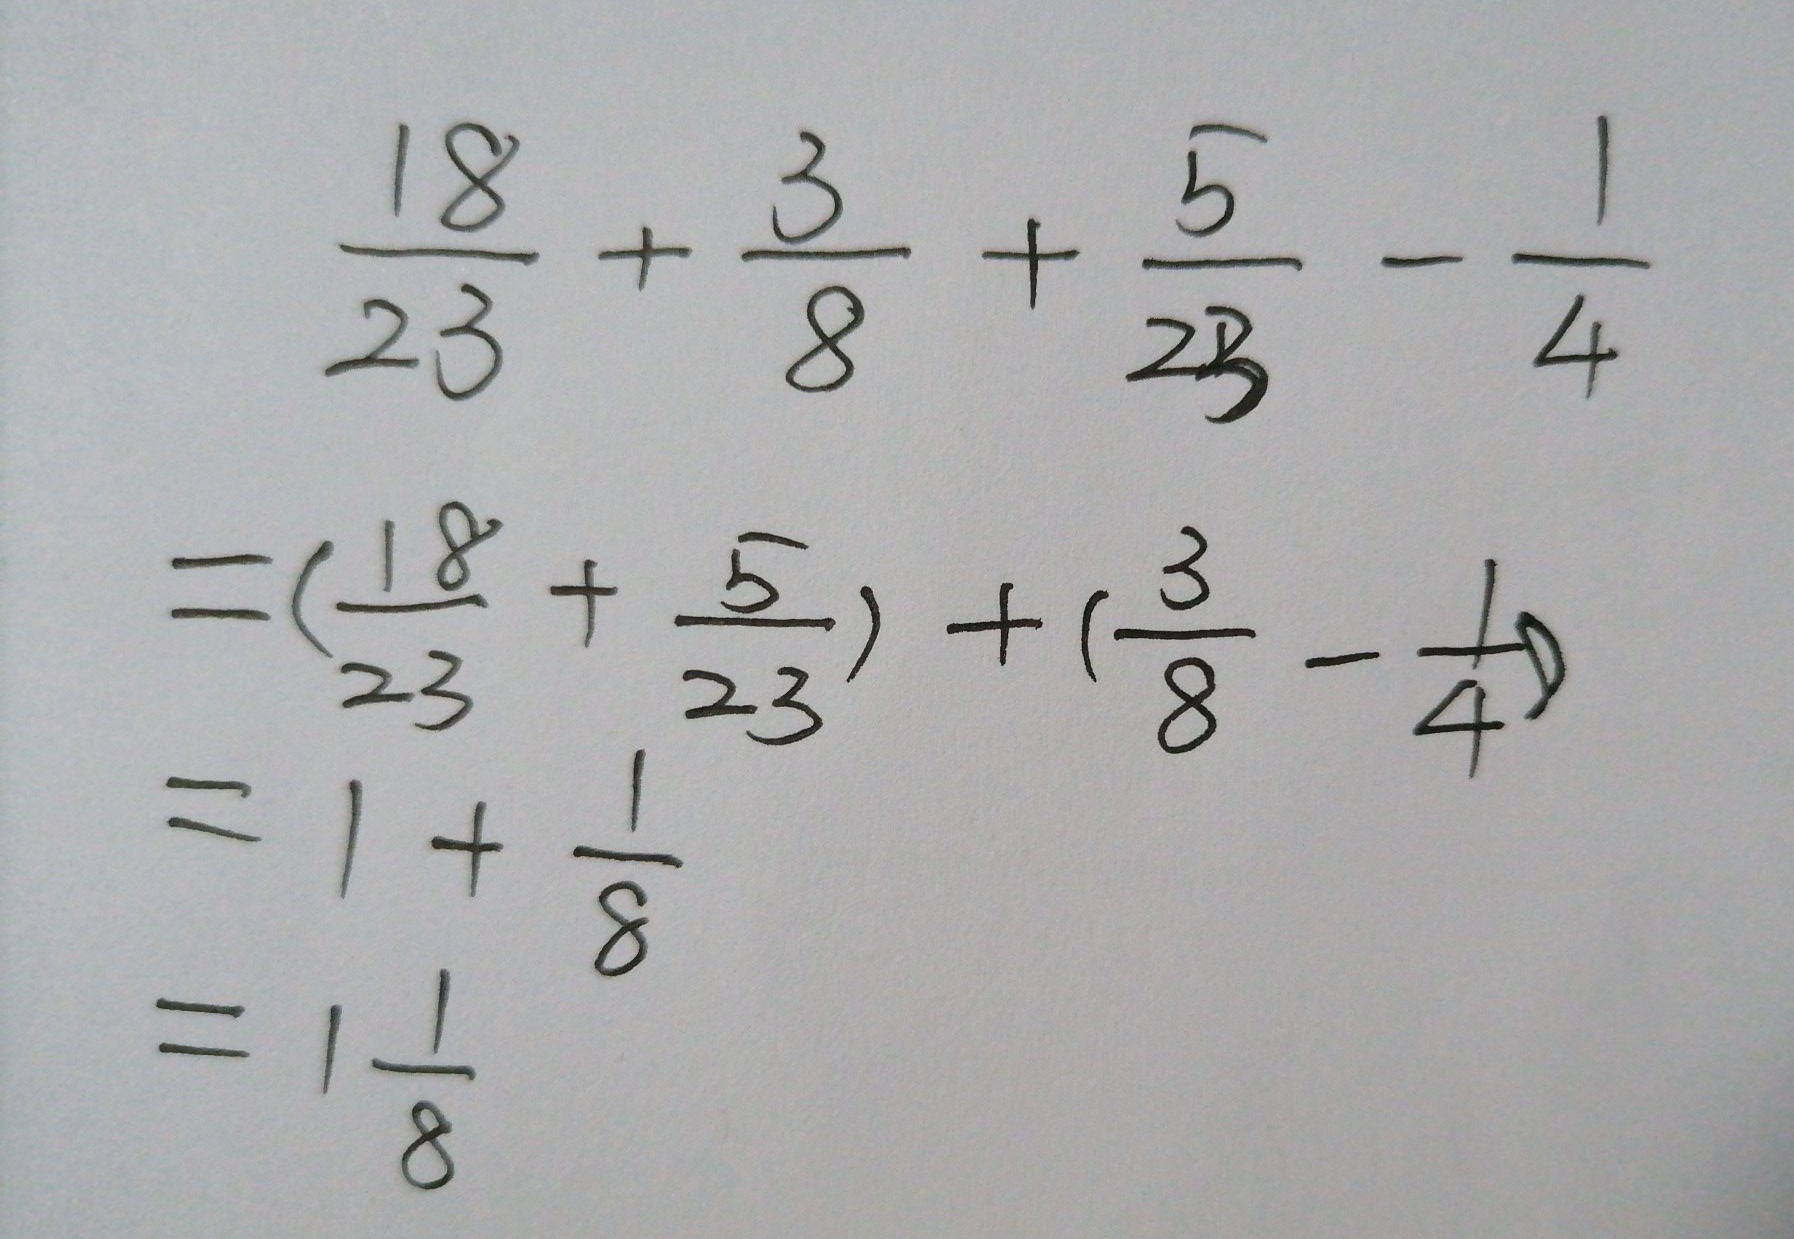 18/23 + 3/8 + 5/23 - 1/4
=(18/23 + 5/23) + (3/8 - 1/4)
= 1 + 1/8
= 1 1/8